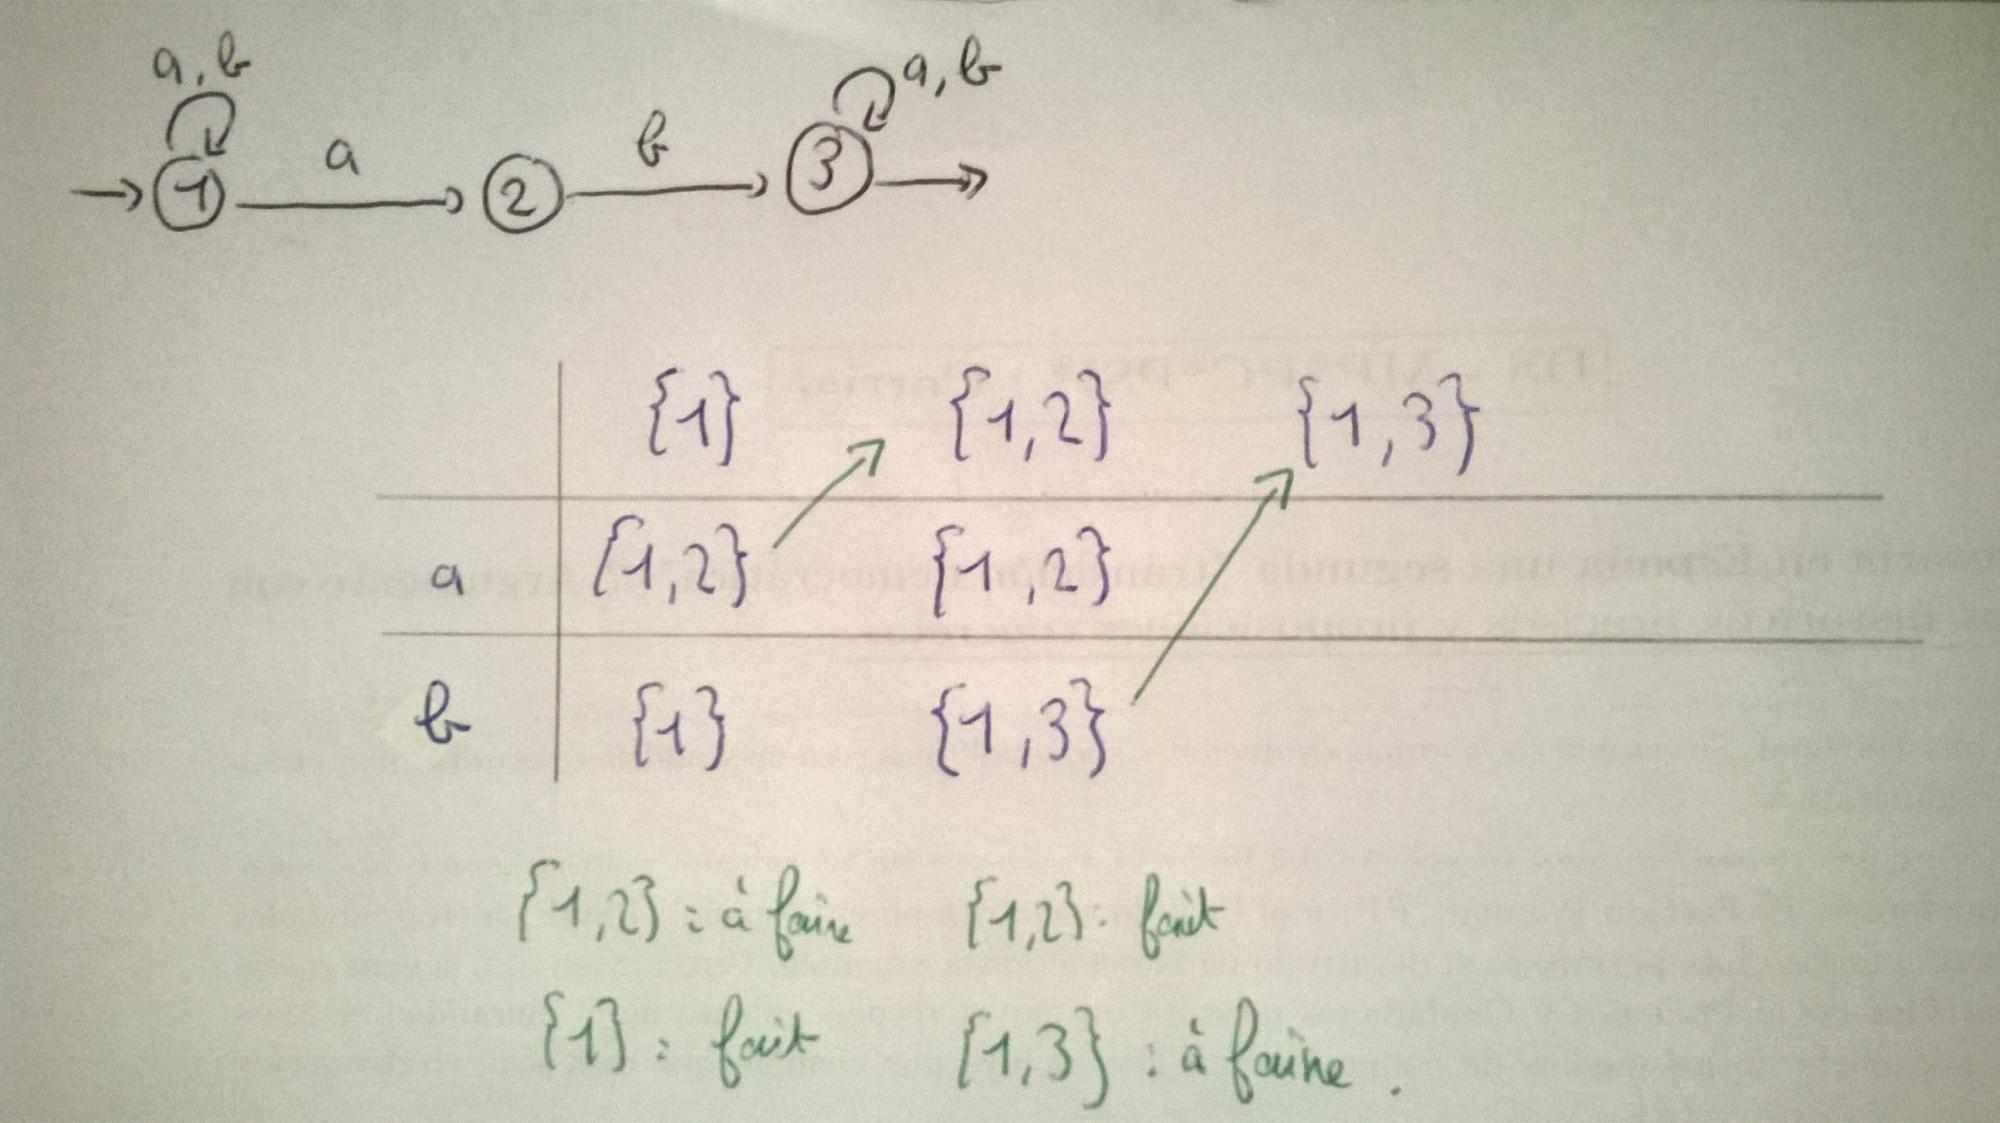 a, b a, b
a b
1 2 3
{1} {1,2} {1,3}
a {1,2} {1,2}
b {1} {1,3}
{1,2} : à faire {1,2} : fait
{1} : fait {1,3} : à faire .